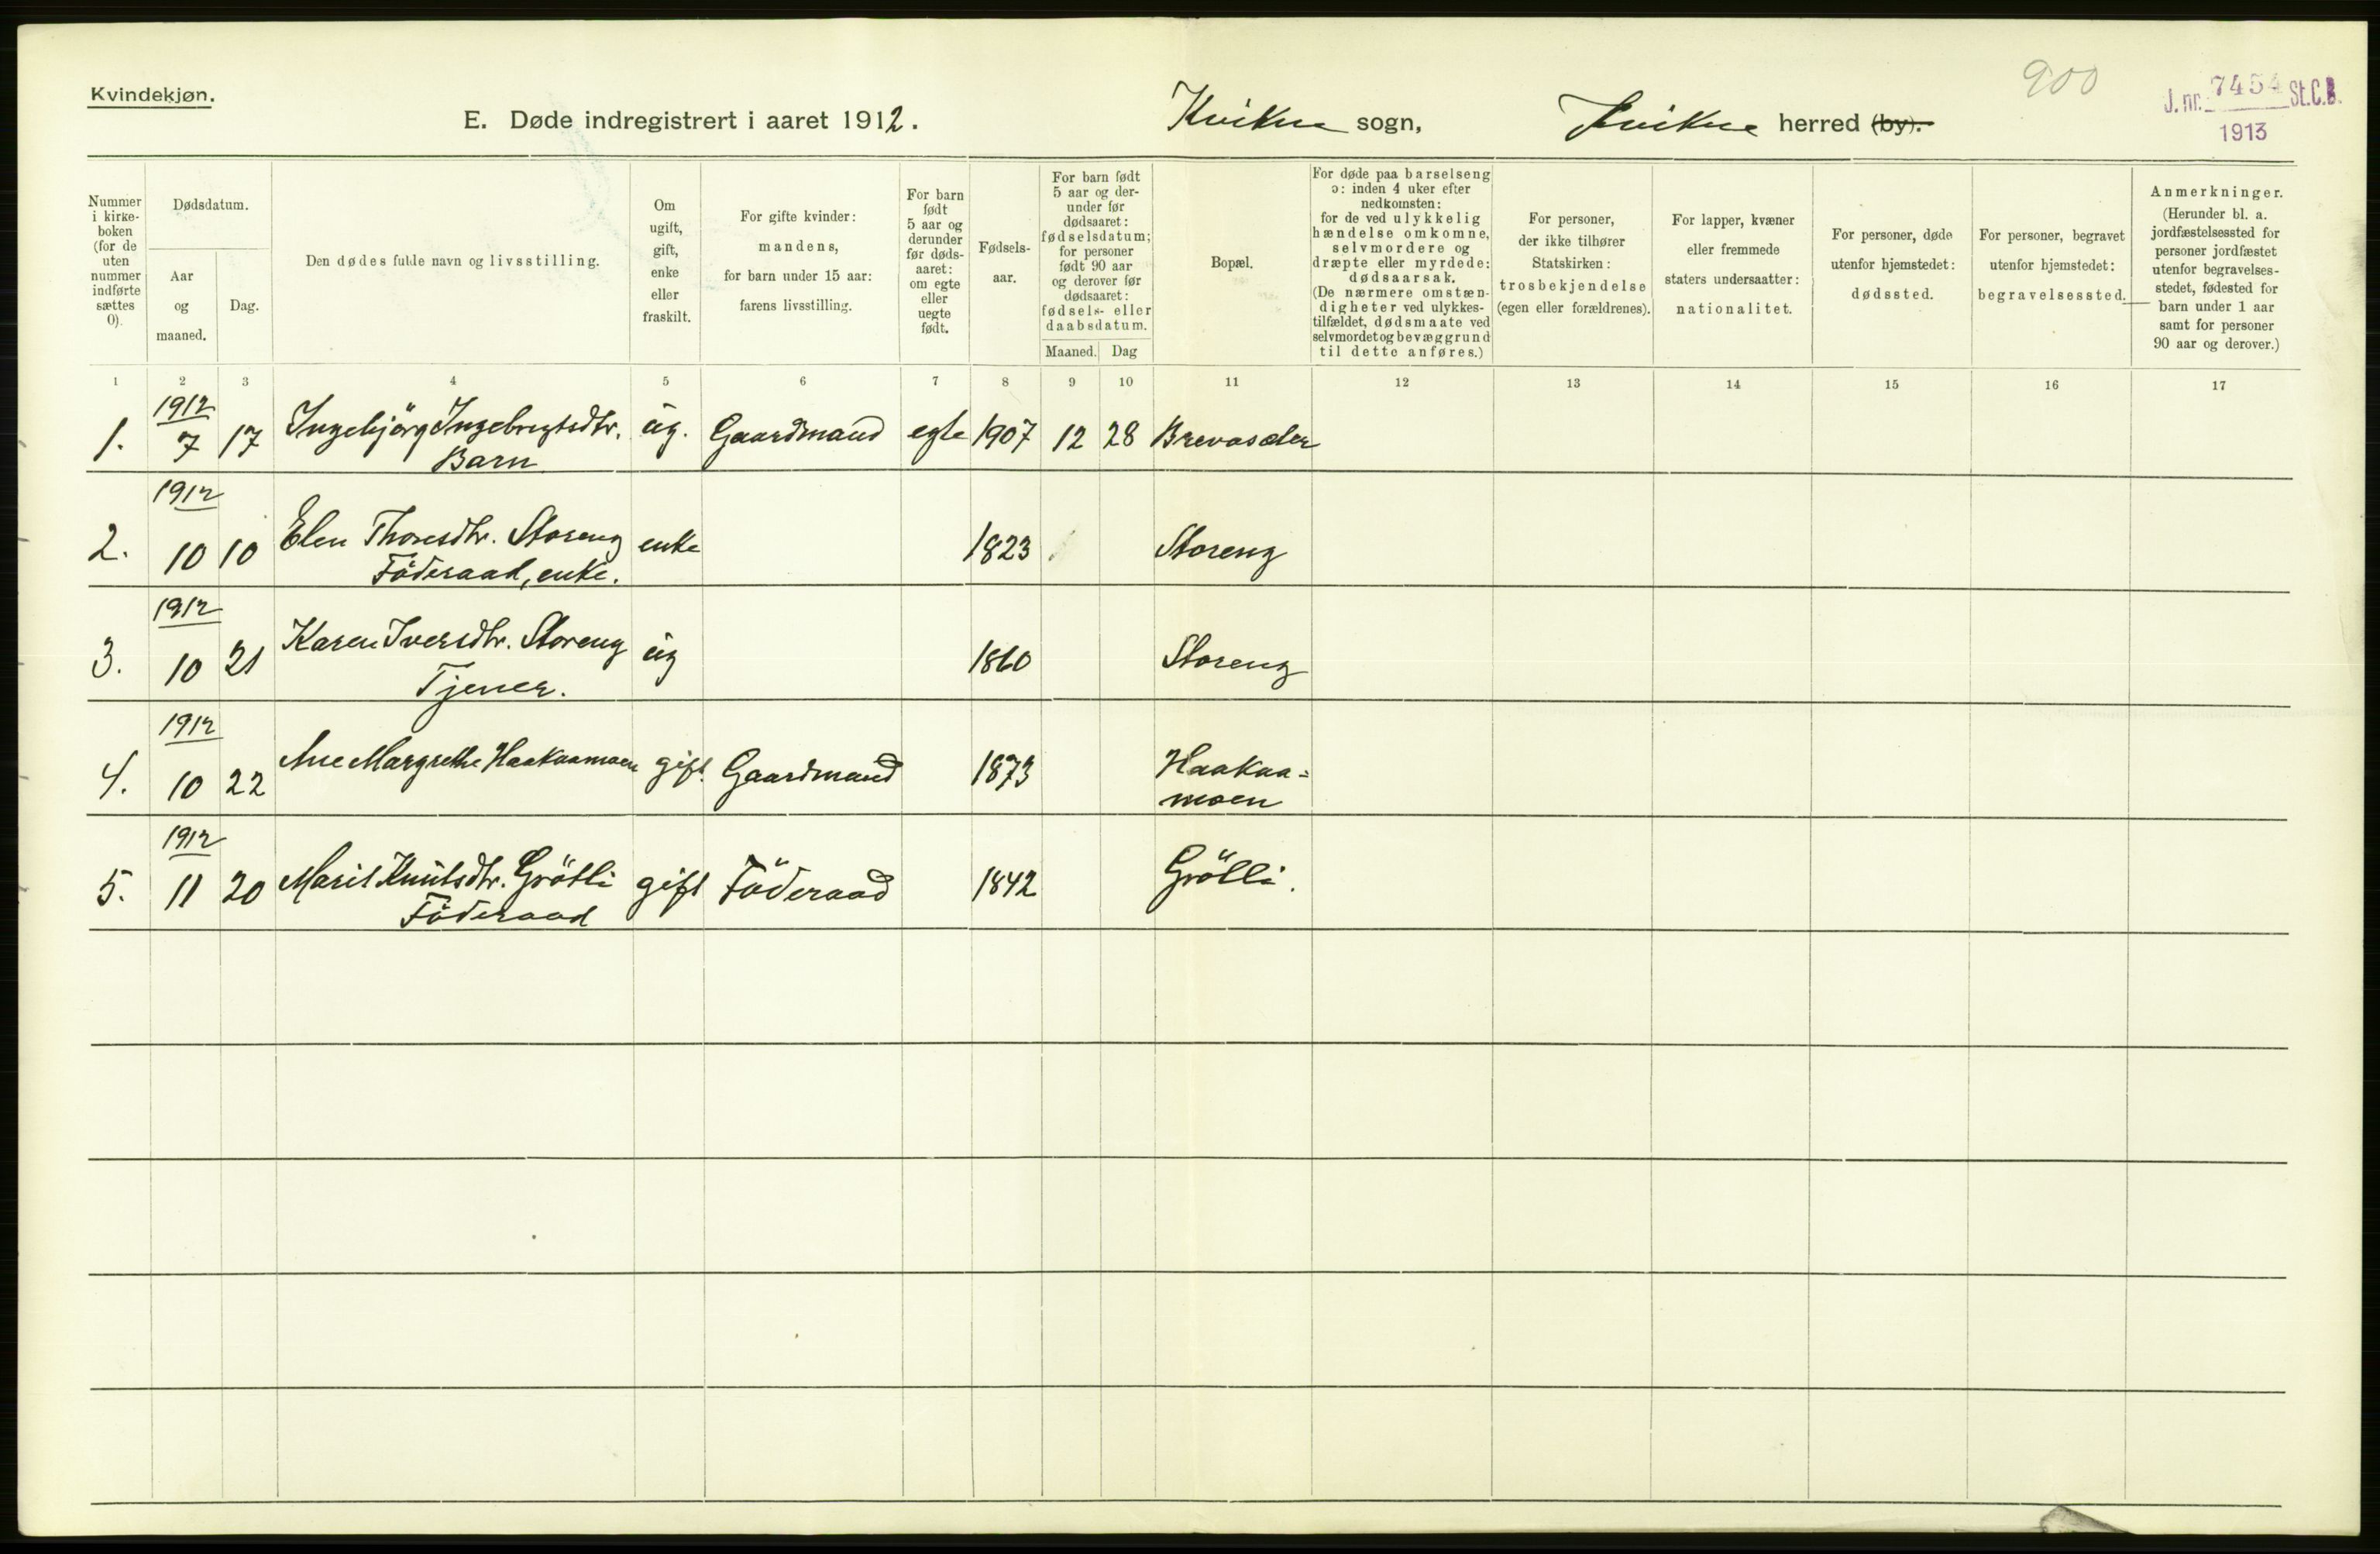 Kvindekjøn.
900
J. nr. 7454 St.C.B.
1913
E. Døde indregistrert i aaret 1912.
Kvikne sogn,
Kvikne herred (by).
Nummer
i kirke-
boken
(for de
uten
nummer
indførte
sættes
0).
Dødsdatum.
Aar
og
maaned.
Dag.
Den dødes fulde navn og livsstilling.
Om
ugift,
gift,
enke
eller
fraskilt.
For gifte kvinder:
mandens,
for barn under 15 aar:
farens livsstilling.
For barn
født
5 aar og
derunder
før døds-
aaret:
om egte
eller
uegte
født.
Fødsels-
aar.
For barn født
5 aar og der-
under før
dødsaaret:
fødselsdatum;
for personer
født 90 aar
og derover før
dødsaaret:
fødsels- eller
daabsdatum.
Maaned.
Dag
Bopæl.
For døde paa barselseng
ɔ: inden 4 uker efter
nedkomsten:
for de ved ulykkelig
hændelse omkomne,
selvmordere og
dræpte eller myrdede:
dødsaarsak.
(De nærmere omstæn-
digheter ved ulykkes-
tilfældet, dødsmaate ved
selvmordet og bevæggrund
til dette anføres.)
For personer,
der ikke tilhører
Statskirken:
trosbekjendelse
(egen eller forældrenes).
For lapper, kvæner
eller fremmede
staters undersaatter:
nationalitet.
For personer, døde
utenfor hjemstedet:
dødssted.
For personer, begravet
utenfor hjemstedet:
begravelsessted.
Anmerkninger.
(Herunder bl. a.
jordfæstelsessted for
personer jordfæstet
utenfor begravelses-
stedet, fødested for
barn under 1 aar
samt for personer
90 aar og derover.)
1 2 3 4 5 6 7 8 9 10 11 12 13 14 15 16 17
1912
1. 7 17 Ingebjörg Ingebregtsdtr. ug. Gaardmand egte 1907 12 28 Brevasæter
Barn
1912
2. 10 10 Elen Thoresdtr. Storeng enke 1823 Storeng
Föderaad, enke.
1912
3. 10 21 Karen Iversdtr. Storeng ug 1860 Storeng
Tjener.
1912
4. 10 22 Ane Margrethe Haakaamoen gift Gaardmand 1873 Haakaa=
moen
1912
5. 11 20 Marit Knutsdtr. Grötli gift Föderaad 1842 Grötli.
Föderaad